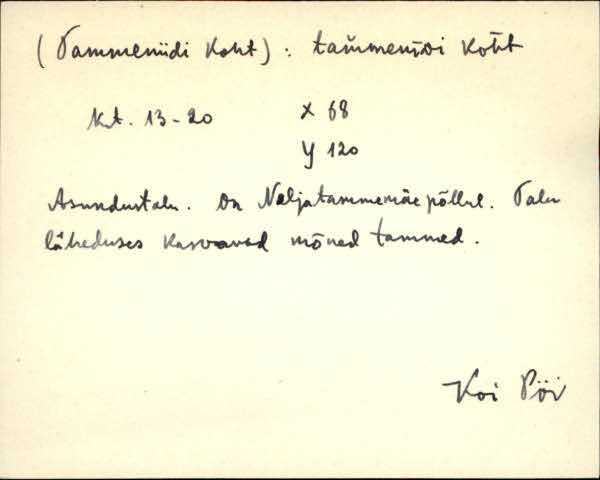 (Tammeniidi Koht) : tam̆menìi̯di koh̆t
Kt. 13-20 X 68
Y 120
Asundustalu. On Neljatammemäe põllul. Talu
läheduses kasvavad mõned tammed.
Koi Pöi